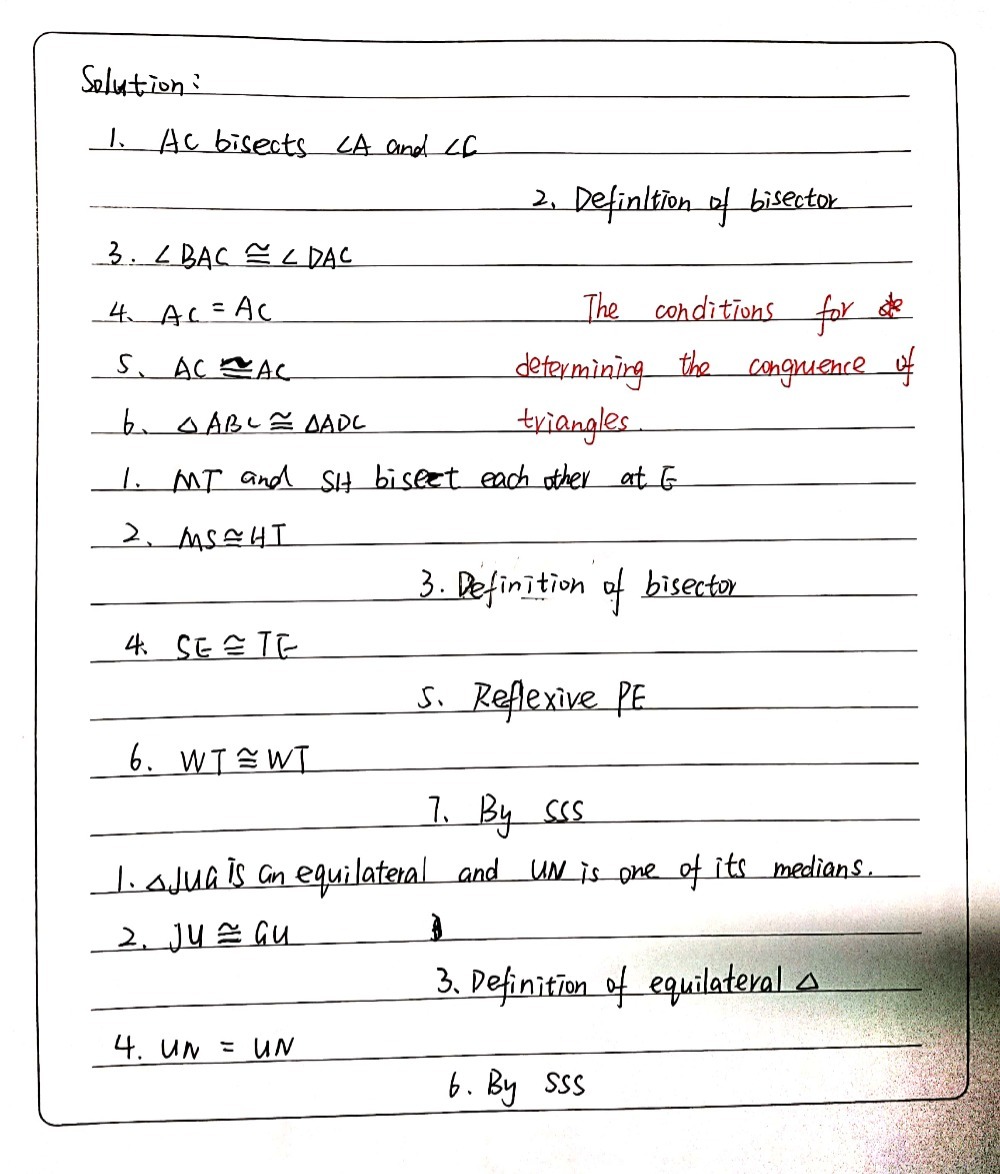 Solution:
1. AC bisects ∠A and ∠C
2. Definition of bisector
3. ∠BAC ≅ ∠DAC
4. AC = AC
The conditions for
5. AC ≅ AC
determining the congruence of
6. △ABC ≅ △ADC
triangles.
1. MT and SH bisect each other at E
2. MS ≅ HT
3. Definition of bisector
4. SE ≅ TE
5. Reflexive PE
6. WT ≅ WT
7. By SSS
1. △JUG is an equilateral and UN is one of its medians.
2. JU ≅ GU
3. Definition of equilateral △
4. UN = UN
6. By SSS